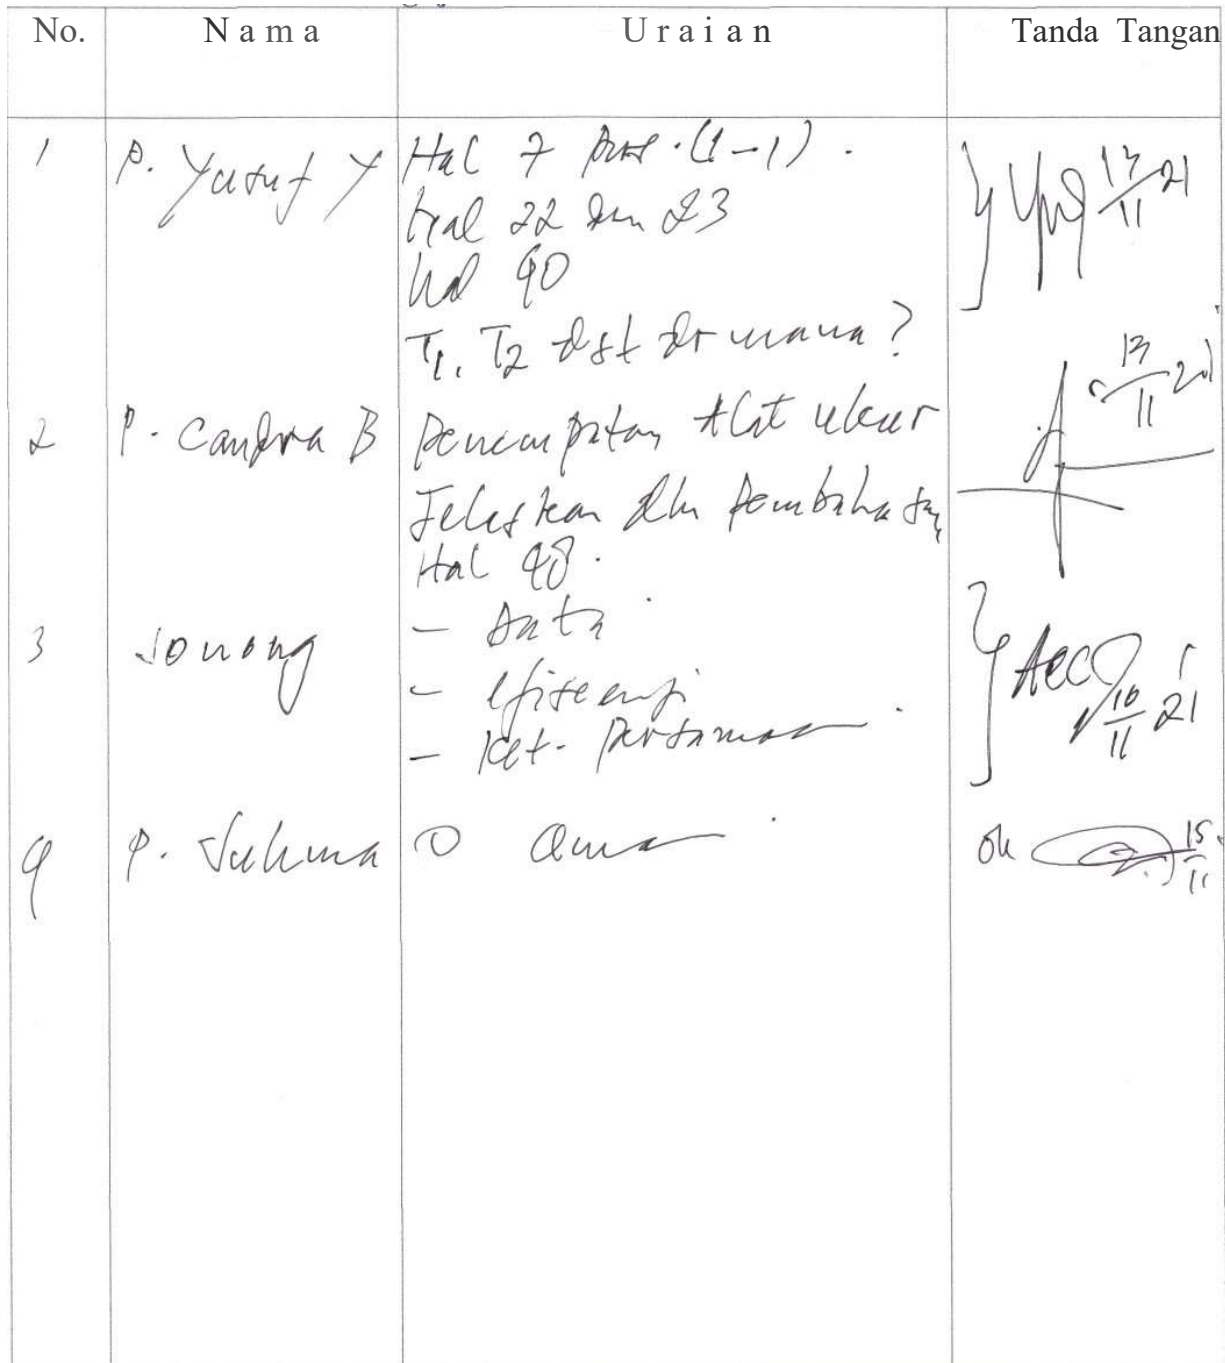 No. Nama Uraian Tanda Tangan
1 P. Yusuf Y Hal 7 pers. (1-1).
Hal 22 dan 23
Hal 40
T1, T2 dst dr mana?
13/11 21
2 P. Candra B Penempatan Alat ukur
13/11
Jelaskan dlm Pembahasan
Hal 48.
3 Jonong - Data
- Efisiensi
- Ket. Persamaan
Acc 16/11 21
4 P. Sukma O
ok 15/11